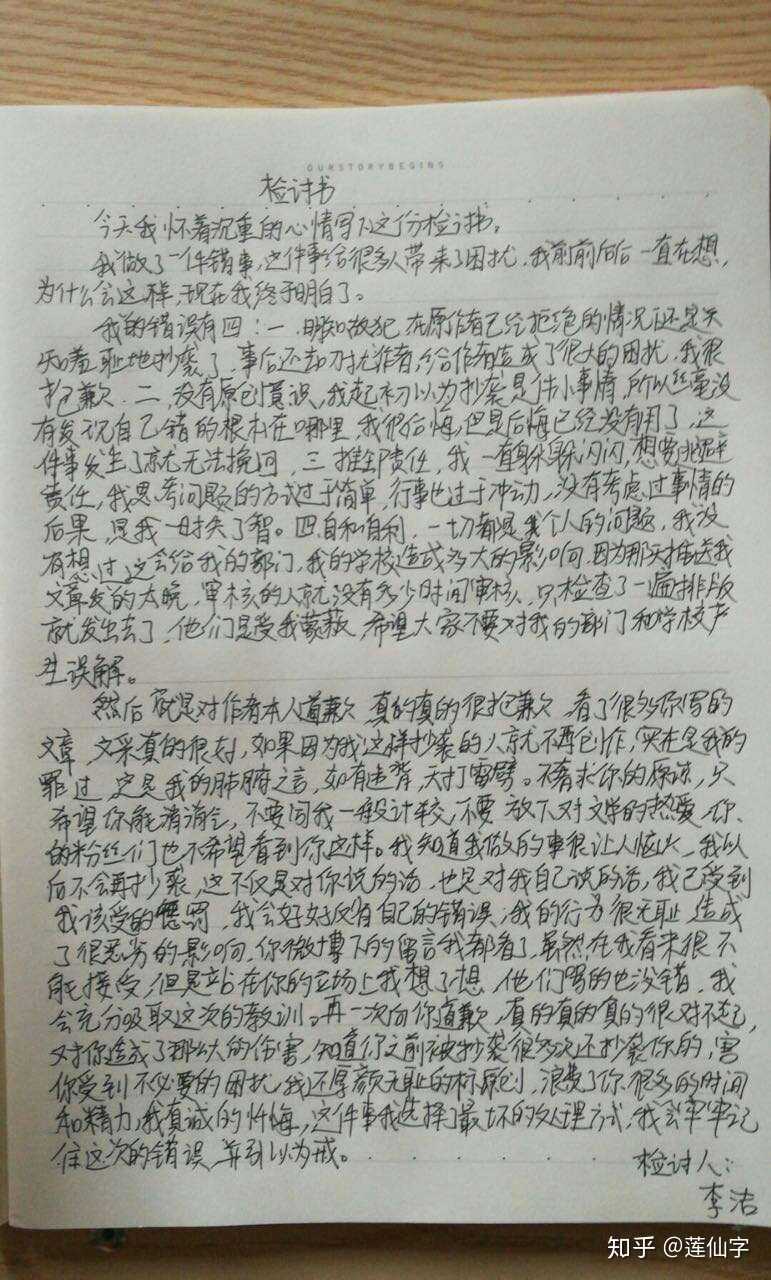 OURSTORYBEGINS
检讨书
今天我怀着沉重的心情写下这份检讨书。
我做了一件错事,这件事给很多人带来了困扰,我前前后后一直在想,
为什么会这样,现在我终于明白了。
我的错误有四:一.明知故犯 在原作者已经拒绝的情况下还是不
知羞耻地抄袭了,事后还去刁难作者,给作者造成了很大的困扰,我很
抱歉.二,没有原创意识,我起初以为抄袭是件小事情,所以丝毫没
有发现自己错的根本在哪里,我很后悔,但是后悔已经没有用了,这
件事发生了就无法挽回,三推卸责任,我一直躲躲闪闪,想要逃避
责任,我思考问题的方式过于简单,行事也过于冲动,没有考虑过事情的
后果,是我一时失了智。四.自私自利,一切都是我个人的问题,我没
有想过这会给我的部门,我的学校造成多大的影响,因为那天推送我
文章发的太晚,审核的人就没有多少时间审核,只检查了一遍排版
就发出去了,他们是受我蒙蔽,希望大家不要对我的部门和学校产
生误解。
然后就是对作者本人道歉 真的真的很抱歉,看了很多你写的
文章,文采真的很好,如果因为我这样抄袭的人就不再创作,实在是我的
罪过,定是我的肺腑之言,如有违背,天打雷劈。不奢求你的原谅,只
希望你能消消气,不要同我一般计较,不要放下对文学的热爱,你
的粉丝们也不希望看到你这样。我知道我做的事很让人恼火,我以
后不会再抄袭,这不仅是对你说的话,也是对我自己说的话,我已受到
我该受的惩罚,我会好好反省自己的错误,我的行为很无耻,造成
了很恶劣的影响,你微博下的留言我都看了,虽然在我看来很不
能接受,但是站在你的立场上我想了想,他们骂的也没错,我
会充分吸取这次的教训。再一次向你道歉,真的真的真的很对不起,
对你造成了那么大的伤害,知道你之前被抄袭很多次还抄袭你的,害
你受到不必要的困扰,我还厚颜无耻的标原创,浪费了你很多的时间
和精力,我真诚的忏悔,这件事我选择了最坏的处理方式,我会牢牢记
住这次的错误,并引以为戒。
检讨人:
李洁
知乎 @莲仙字